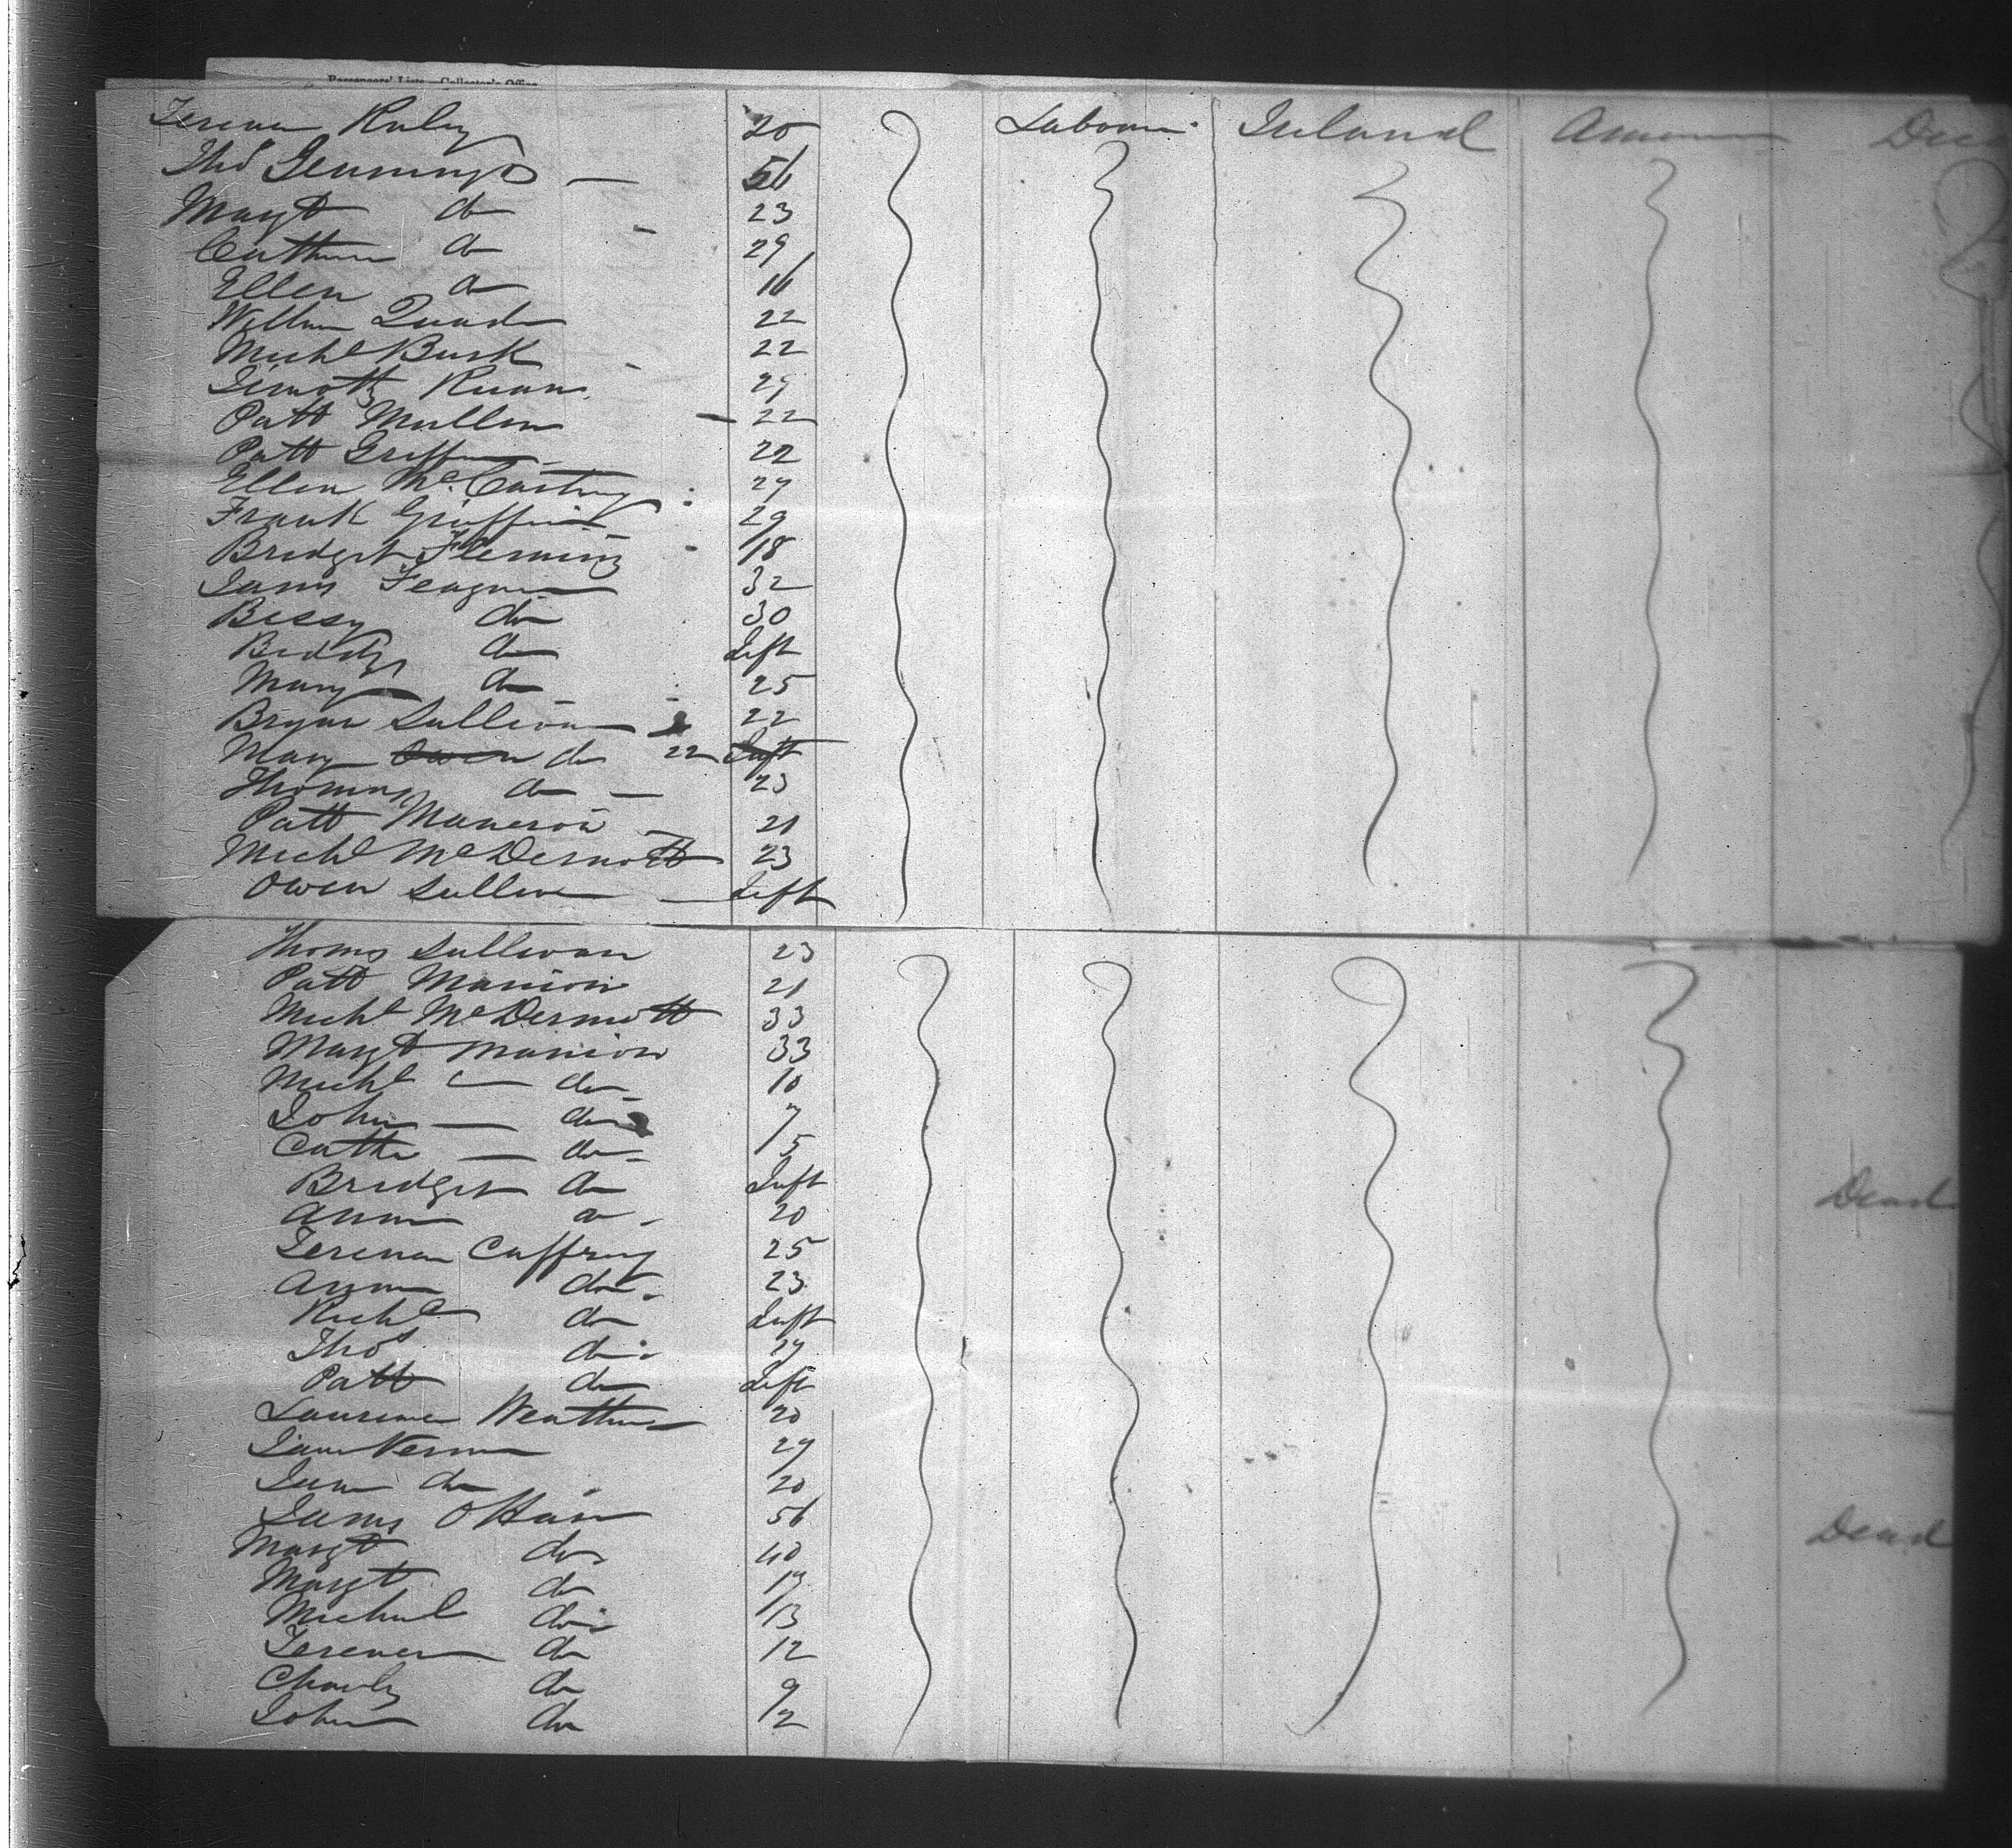 Passengers' Lists - Collector's Office
Terence Raley 20 Labourer Ireland America
Thos Jennings — 56
Margt do 23
Cathrine do 29
Ellen do 16
William Quade 22
Michl Burk 22
Timothy Ruan 29
Patt Mullen 22
Patt Griffin 22
Ellen McCarthy 27
Frank Griffin 29
Bridget Fleming 18
James Feagan 32
Bessy do 30
Biddy do Left
Mary do 25
Bryan Sullivan 22
Mary Owen do 22 Left
Thomas do — 23
Patt Maneron 21
Michl McDermott 23
Owen Sullivan — Left
Thoms Sullivan 23
Patt Manion 21
Michl McDermott 33
Margt Manion 33
Michl — do 10
John — do 7
Cathe — do 5
Bridget do Left Dead
Anne do 20
Terence Caffrey 25
Anne do 23
Richd do Left
Thos do 27
Patt do Left
Laurence 20
Jane 27
Jane do 20
James OHare 56
Margt do 40 Dead
Margt do 17
Michael do 13
Terence do 12
Charly do 9
John do 2